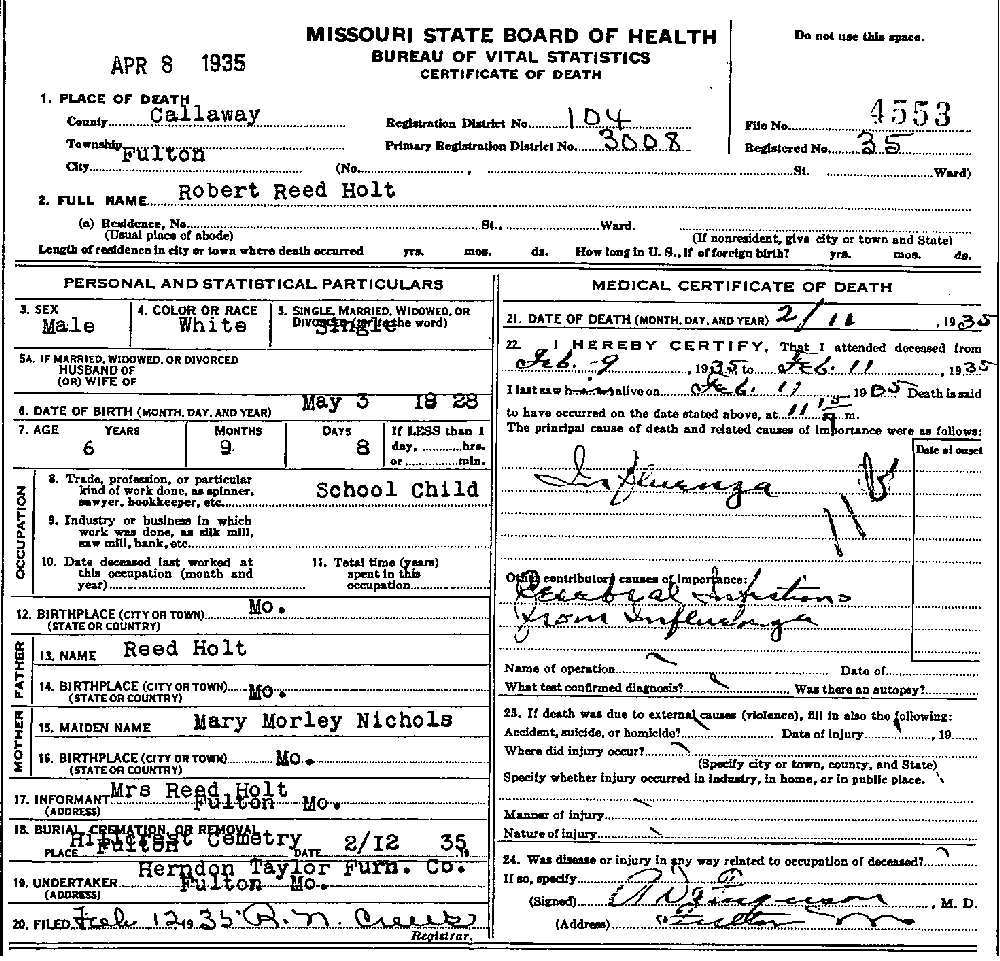 MISSOURI STATE BOARD OF HEALTH
BUREAU OF VITAL STATISTICS
CERTIFICATE OF DEATH
Do not use this space.
APR 8 1935
1. PLACE OF DEATH
County Callaway
Registration District No. 104
File No. 4553
Township
Primary Registration District No. 3008
Registered No. 35
City Fulton (No. , St. Ward)
2. FULL NAME Robert Reed Holt
(a) Residence, No. St., Ward.
(Usual place of abode) (If nonresident, give city or town and State)
Length of residence in city or town where death occurred yrs. mos. ds. How long in U. S., if of foreign birth? yrs. mos. ds.
PERSONAL AND STATISTICAL PARTICULARS
3. SEX 4. COLOR OR RACE 5. SINGLE, MARRIED, WIDOWED, OR
DIVORCED (write the word)
Male White Single
5A. IF MARRIED, WIDOWED, OR DIVORCED
HUSBAND OF
(OR) WIFE OF
6. DATE OF BIRTH (MONTH, DAY, AND YEAR) May 3 1928
7. AGE YEARS MONTHS DAYS If LESS than 1
6 9 8 day, hrs.
or min.
OCCUPATION
8. Trade, profession, or particular
kind of work done, as spinner,
sawyer, bookkeeper, etc. School Child
9. Industry or business in which
work was done, as silk mill,
saw mill, bank, etc.
10. Date deceased last worked at
this occupation (month and
year)
11. Total time (years)
spent in this
occupation
12. BIRTHPLACE (CITY OR TOWN) Mo.
(STATE OR COUNTRY)
FATHER
13. NAME Reed Holt
14. BIRTHPLACE (CITY OR TOWN) Mo.
(STATE OR COUNTRY)
MOTHER
15. MAIDEN NAME Mary Morley Nichols
16. BIRTHPLACE (CITY OR TOWN) Mo.
(STATE OR COUNTRY)
17. INFORMANT Mrs Reed Holt
(ADDRESS) Fulton Mo.
18. BURIAL, CREMATION, OR REMOVAL
PLACE Hillcrest Cemetry Fulton DATE 2/12 35 19
19. UNDERTAKER Herndon Taylor Furn. Co.
(ADDRESS) Fulton Mo.
20. FILED Feb 12 1935 R. N. Crews
Registrar.
MEDICAL CERTIFICATE OF DEATH
21. DATE OF DEATH (MONTH, DAY, AND YEAR) 2/11, 1935
22. I HEREBY CERTIFY, That I attended deceased from
Feb. 9, 1935, to Feb. 11, 1935
I last saw h alive on Feb. 11 1935 Death is said
to have occurred on the date stated above, at 11 15 m.
The principal cause of death and related causes of importance were as follows:
Date of onset
Influenza
11 B
Other contributory causes of importance:
Cerebral
from Influenza
Name of operation Date of
What test confirmed diagnosis? Was there an autopsy?
23. If death was due to external causes (violence), fill in also the following:
Accident, suicide, or homicide? Date of injury , 19
Where did injury occur?
(Specify city or town, county, and State)
Specify whether injury occurred in industry, in home, or in public place.
Manner of injury
Nature of injury
24. Was disease or injury in any way related to occupation of deceased?
If so, specify
(Signed) , M. D.
(Address) Fulton Mo